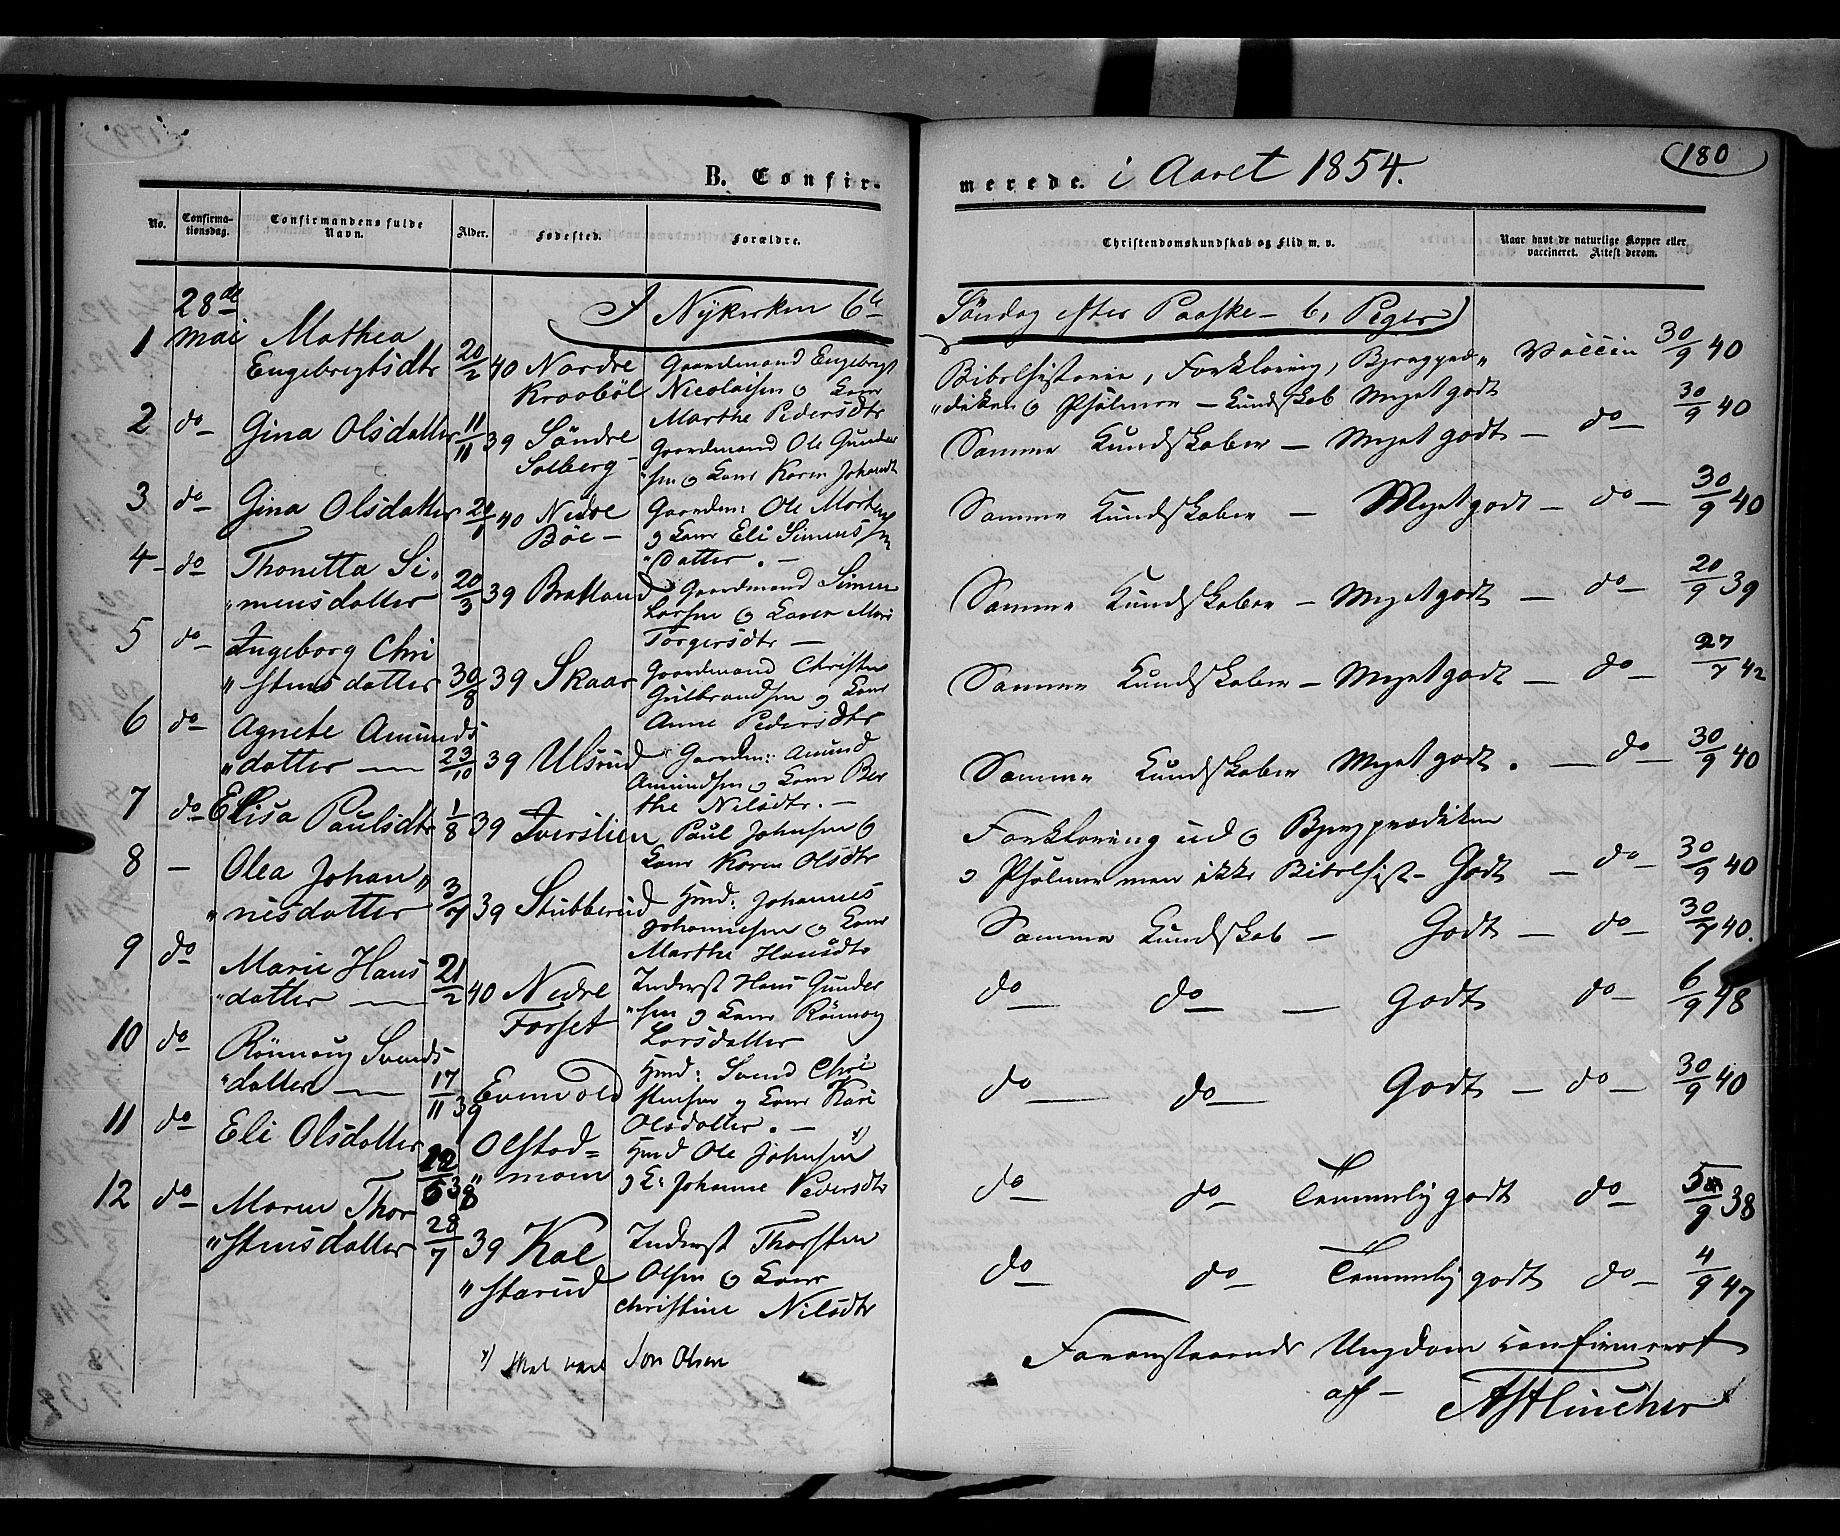 180
B. Confirmerede. i Aaret 1854.
No. Confirmationsdag. Confirmandens fulde Navn. Alder. Fødested. Forældre. Christendomskundskab og Flid m. v. Naar havt de naturlige Kopper eller vaccineret. Attest derom.
I Nykirken 6te Söndag efter Paaske – b, Piger
28de
1 mai Mathea
Engebrigtsdtr 20/2 40 Nordre
Kraaböl
Gaardmand Engebrigt
Nicolaisen og Kone
Marthe Pedersdtr
Bibelhistorie, Forklaring, Bjergpræ„
„diken og Psalmer – Kundskab Meget godt
Vaccin 30/9 40
2 do Gina Olsdatter 11/11 39 Söndre
Solberg –
Gaardmand Ole Gunder
„sen og Kone Karen Johansdt
Samme Kundskaber – Meget godt – do – 30/9 40
3 do Gina Olsdatter 40 Nedre
Böe –
Gaardm: Ole Mortens
og Kone Eli Simens
„datter. –
Samme Kundskaber – Meget godt – do – 30/9 40
4 – do Thonetta Si„
„mensdatter 20/3 39 Brattland
Gaardmand Simen
Larsen og Kone Mari
Torgersdtr –
Samme Kundskaber – Meget godt – do – 20/9 39
5 do – Ingeborg Chri
„stensdatter 30/8 39 Skaar
Gaardmand Christen
Gulbrandsen og Kone
Anne Pedersdtr
Samme Kundskaber – Meget godt – do – 27/7 42
6 do – Agnete Amunds
„datter — 23/10 39 Ulsrud
Gaardm: Amund
Amundsen og Kone Ber
the Nilsdtr. –
Samme Kundskaber Meget godt. – do – 30/9 40
7 do – Elisa Paulsdtr 1/8 39 Iverslien
Paul Johnsen og
Kone Karen Olsdtr
Forklaring ud og Bjergprædiken
og Psalmer men ikke Bibelhist – Godt – do – 30/9 40
8 – Olea Johan„
„nisdatter 3/7 39 Stubberud
Hmd: Johannes
Johannesen og Kone
Marthe Hansdtr
Samme Kundskab – Godt – do – 30/7 40.
9 do Marie Hans
„datter — 21/2 40 Nedre
Forset
Inderst Hans Gunder
„sen og Kone Rönnoug
Larsdatter
do – do – Godt do – 6/9 48
10 do Rönnoug Svends
„datter — 17/11 39 Evenvold
Hmd: Svend Chri
stensen og Kone Kari
Olsdatter. –
do – do – Godt – do – 30/9 40
11 do – Eli Olsdatter 38 Olstad=
„moen
Hmd Ole Johnsen x)
og K: Johanne Pedersdtr
do – do – Temmelig godt do – 5/9 38
12 do – Maren Thor
„stensdatter 28/7 39 Kal
„starud
Inderst Thorsten
Olsen og Kone
Christine Nilsdtr
do – do – Temmelig godt do – 4/9 47
x) skal være Jon Olsen
Foranstaaende Ungdom confirmeret
af –